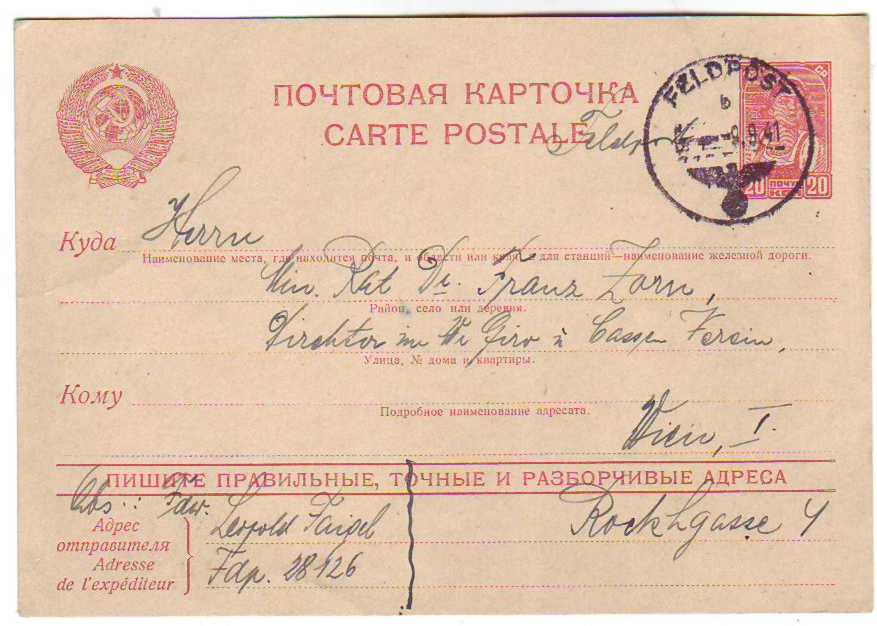 ПОЧТОВАЯ КАРТОЧКА
CARTE POSTALE
Feldpost
FELDPOST
b
-9.9.41
20 ПОЧТА 20
КОП
Куда Herrn
Наименование места, где находится почта, и области или края, а для станций—наименование железной дороги.
Min. Rat Dr. Franz Zorn,
Район, село или деревня.
im Giro u Cassen Verein,
Улица, № дома и квартиры.
Кому
Подробное наименование адресата.
Wien, I.
ПИШИТЕ ПРАВИЛЬНЫЕ, ТОЧНЫЕ И РАЗБОРЧИВЫЕ АДРЕСА
Abs.:
Leopold Faigel
Rockhgasse 4
Адрес
отправителя
Adresse
de l'expéditeur
Fdp. 28126